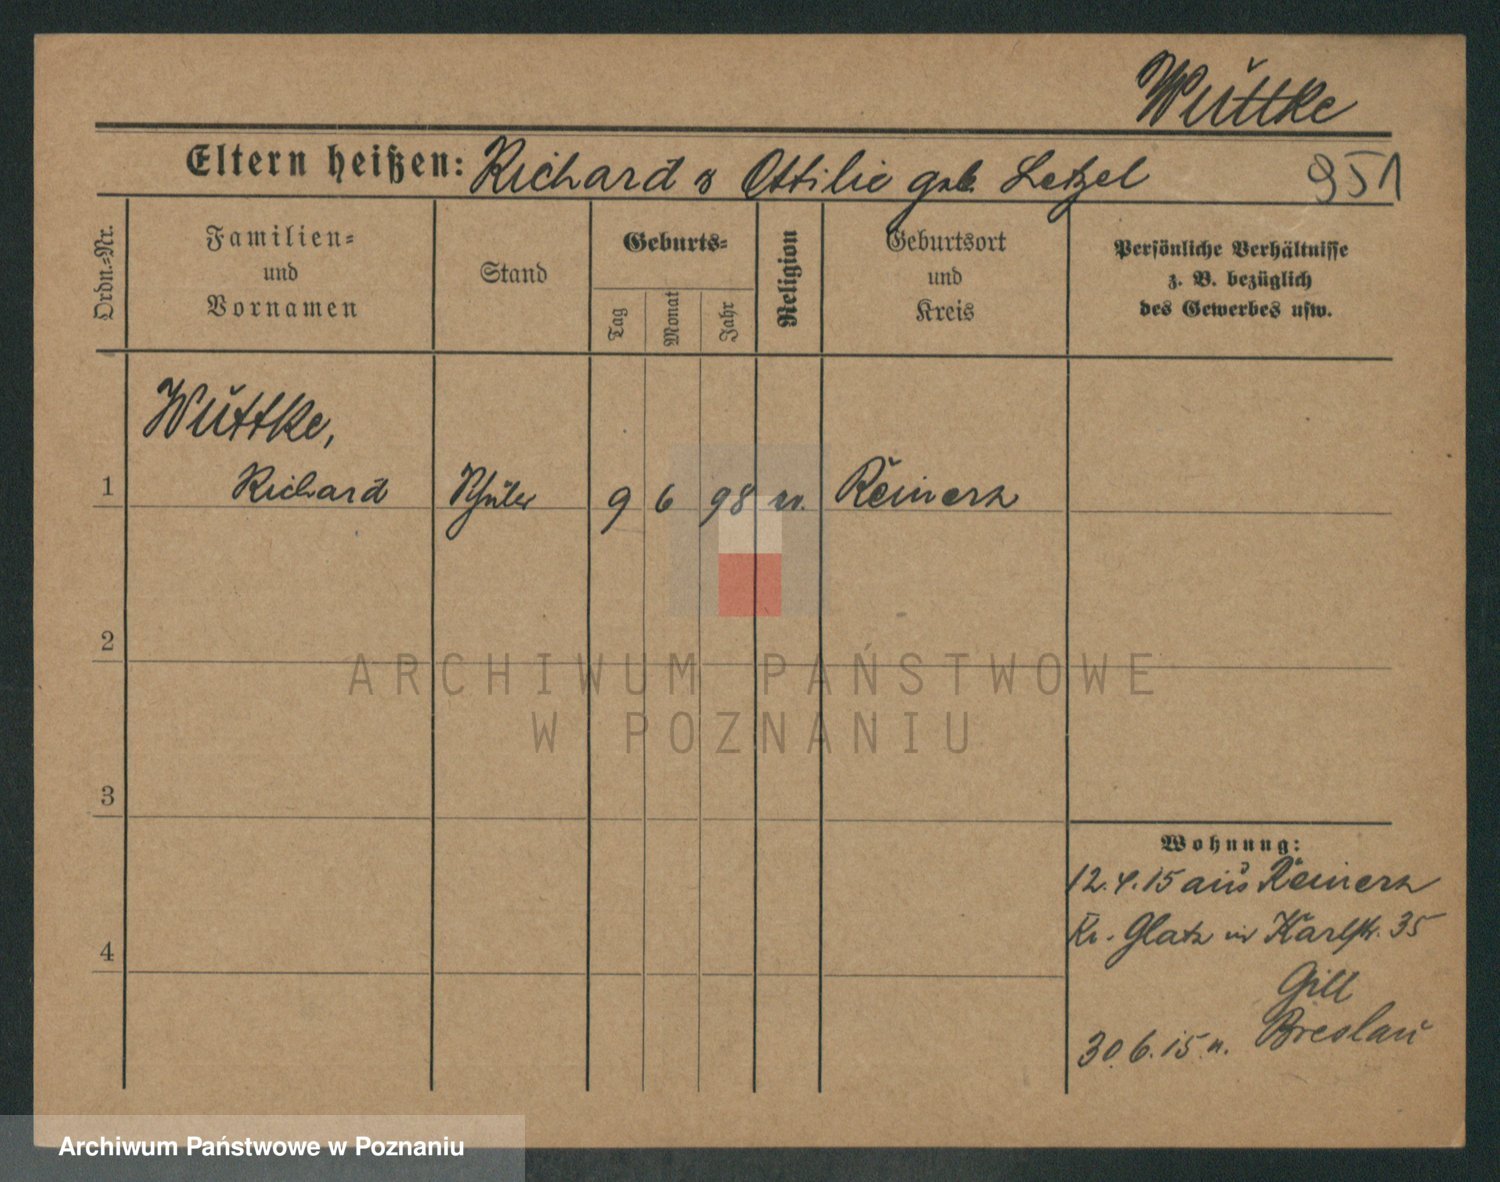 Wuttke
Eltern heißen: Richard & Ottilie geb. Letzel
951
Ordn.=Nr.
Familien=
und
Vornamen
Stand
Geburts=
Tag
Monat
Jahr
Religion
Geburtsort
und
Kreis
Persönliche Verhältnisse
z. B. bezüglich
des Gewerbes usw.
Wuttke,
1 Richard Schüler 9 6 98 ev. Reinerz
2
3
4
Wohnung:
12.4.15 aus Reinerz
Kr. Glatz in Karlstr. 35
Gill
30.6.15 n. Breslau
ARCHIWUM PAŃSTWOWE
W POZNANIU
Archiwum Państwowe w Poznaniu